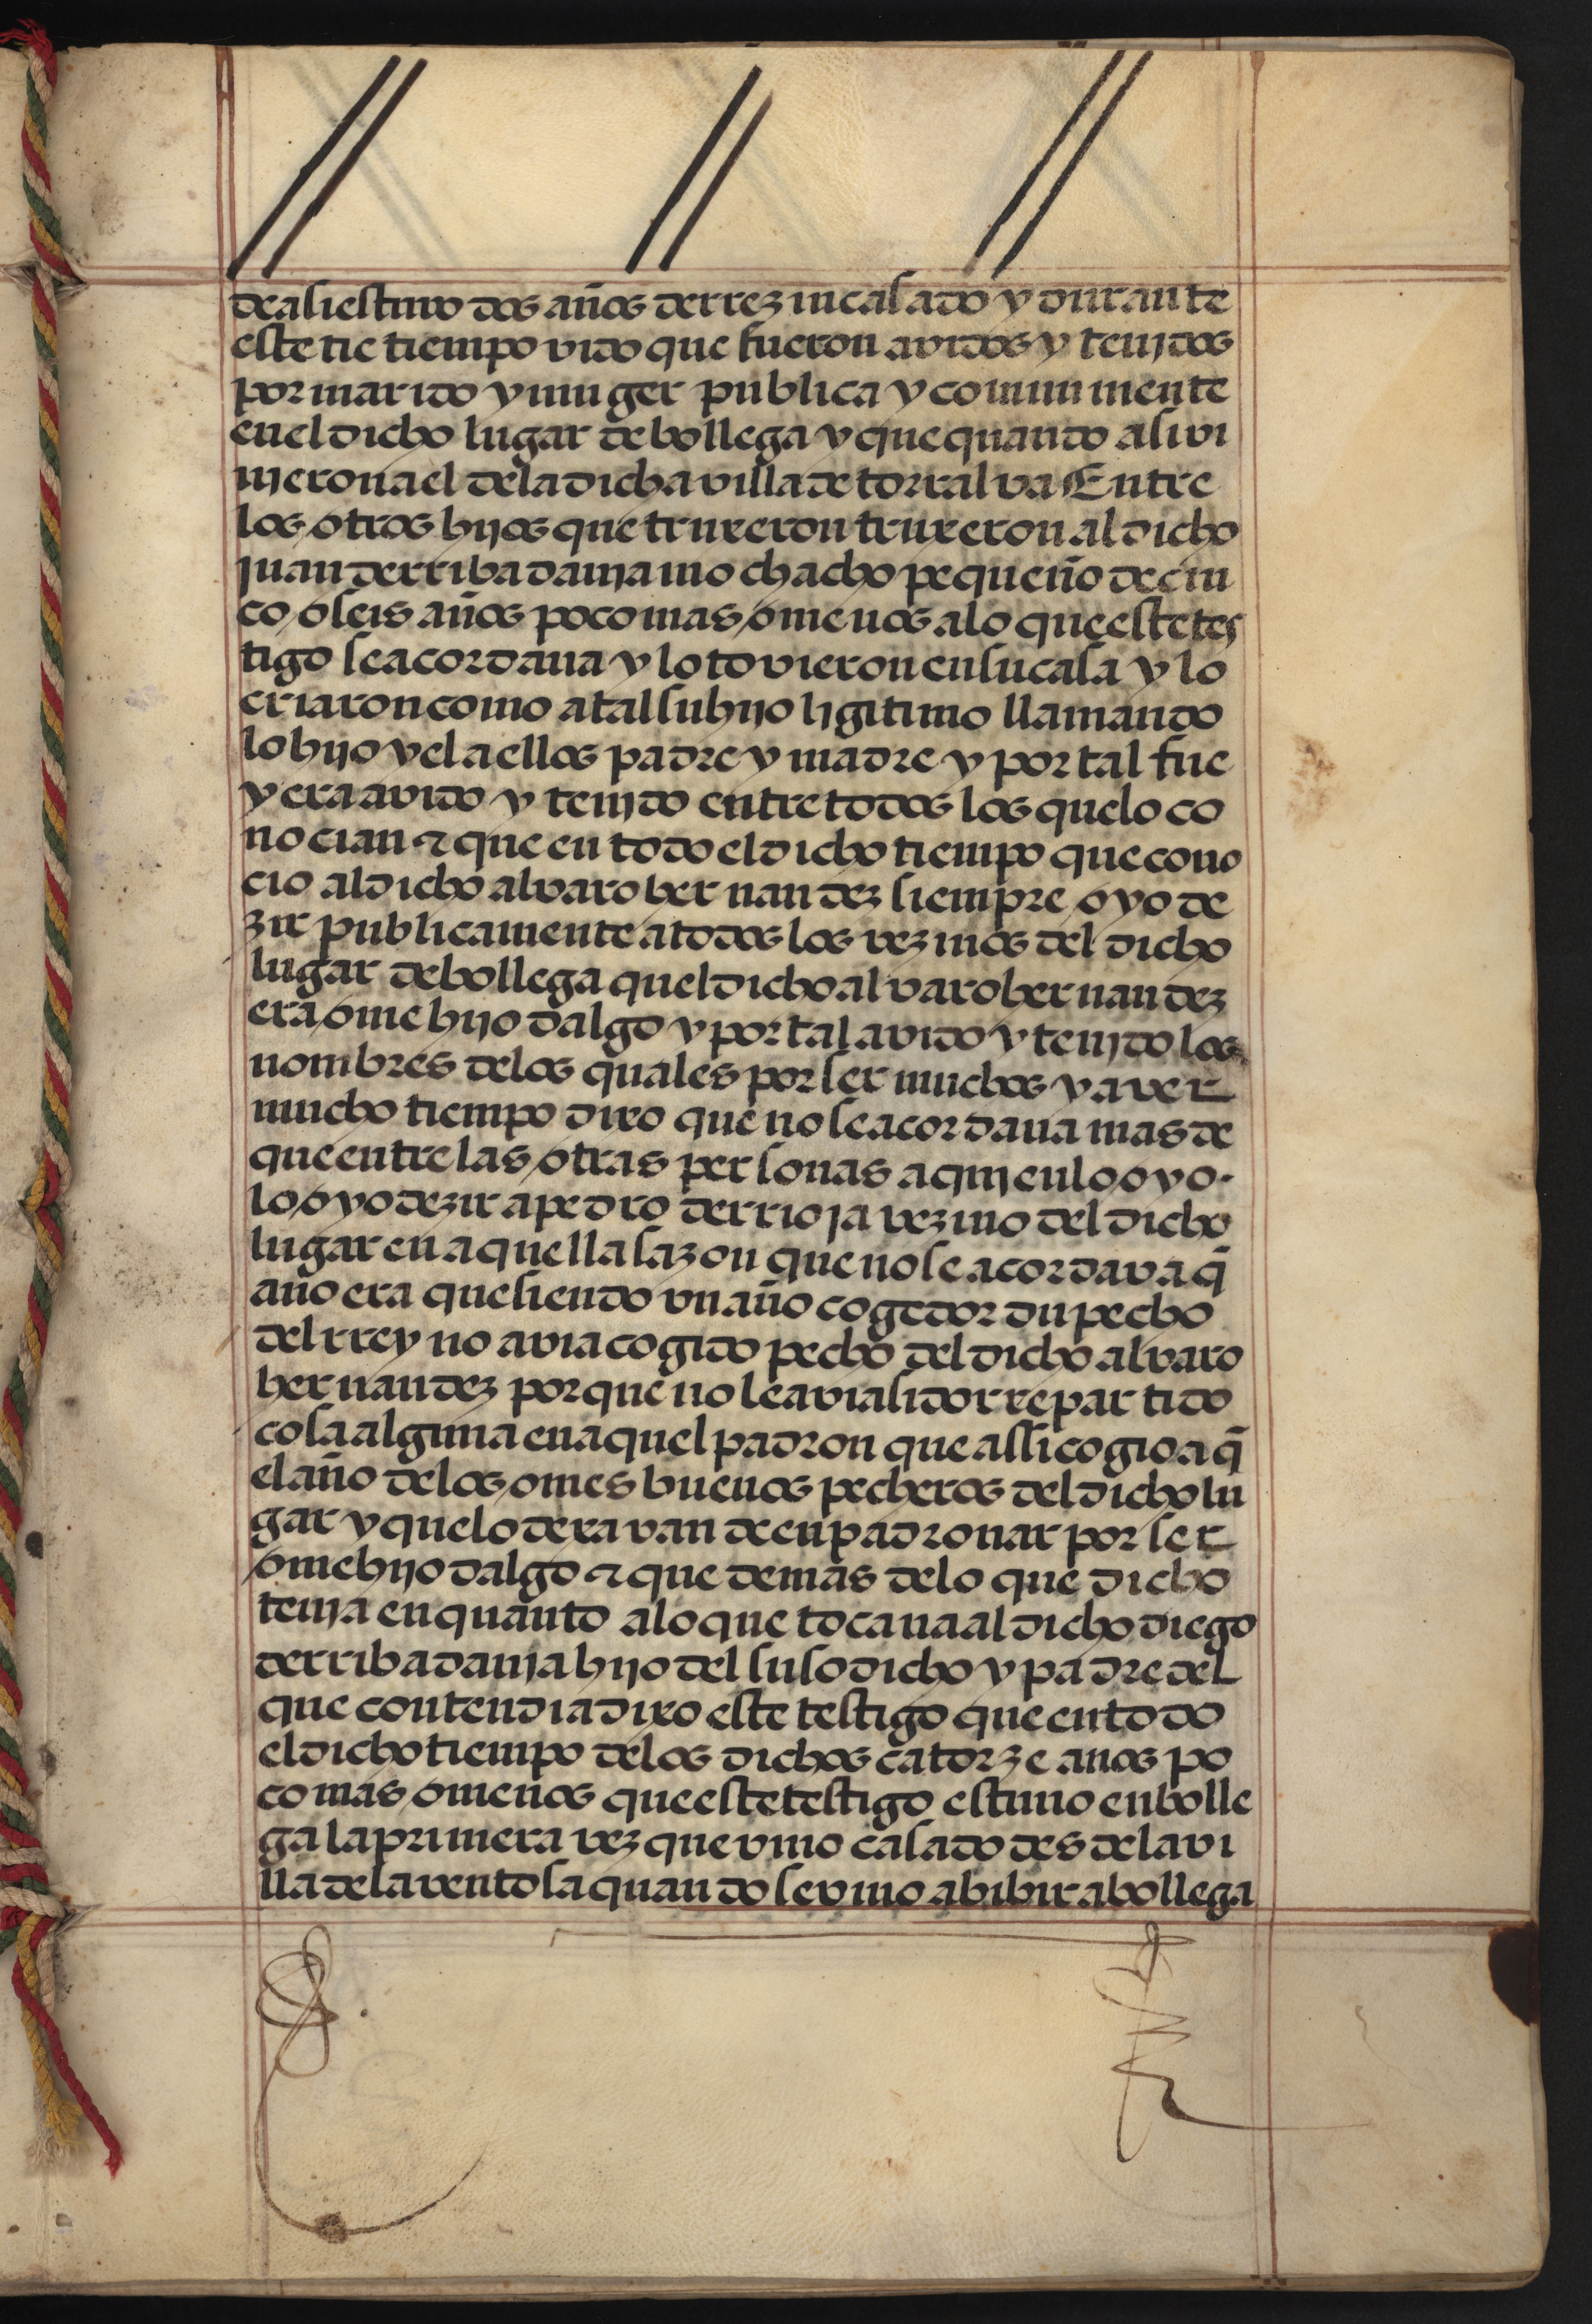 de ali estuvo dos años de rrezin casado y durante
este tie tiempo vido que fueron avidos y tenjdos
por marido y muger publica y comunmente
en el dicho lugar de bollega y que quando ali vi
njeron a el de la dicha villa de torralva Entre
los otros hijos que truxeron truxeron al dicho
juan de rribadanja mochacho pequeño de cin
co o seis años poco mas o menos a lo que este tes
tigo se acordaua y lo tovieron en su casa y lo
criaron como a tal su hijo ligitimo llamando
lo hijo y el a ellos padre y madre y por tal fue
y era avido y tenjdo entre todos los que lo co
nocian ⁊ que en todo el dicho tiempo que cono
cio al dicho alvaro hernandez siempre oyo de
zir publicamente a todos los vezinos del dicho
lugar de bollega quel dicho alvaro hernandez
era ome hijo dalgo y por tal avido y tenjdo los
nombres de los quales por ser muchos y aver
mucho tiempo dixo que no se acordaua mas de
que entre las otras personas a qujen lo oyo.
lo oyo dezir a pedro de rrioja vezino del dicho
lugar en aquella sazon que no se acordava q̃
año era que siendo vn año cogedor du pecho
del rrey no avia cogido pecho del dicho alvaro
hernandez porque no le avia sido rrepartido
cosa alguna en aquel padron que assi cogio aq̃
el año de los omes buenos pecheros del dicho lu
gar y que lo dexavan de enpadronar por ser
ome hijo dalgo ⁊ que demas de lo que dicho
tenja en quanto a lo que tocaua al dicho diego
de rribadanja hijo del suso dicho y padre del
que contendia dixo este testigo que en todo
el dicho tiempo de los dichos catorze anos po
co mas o menos que este testigo estuuo en bolle
ga la primera vez que vino casado desde la vi
lla de la ventosa quando se vino a bibir a bollega